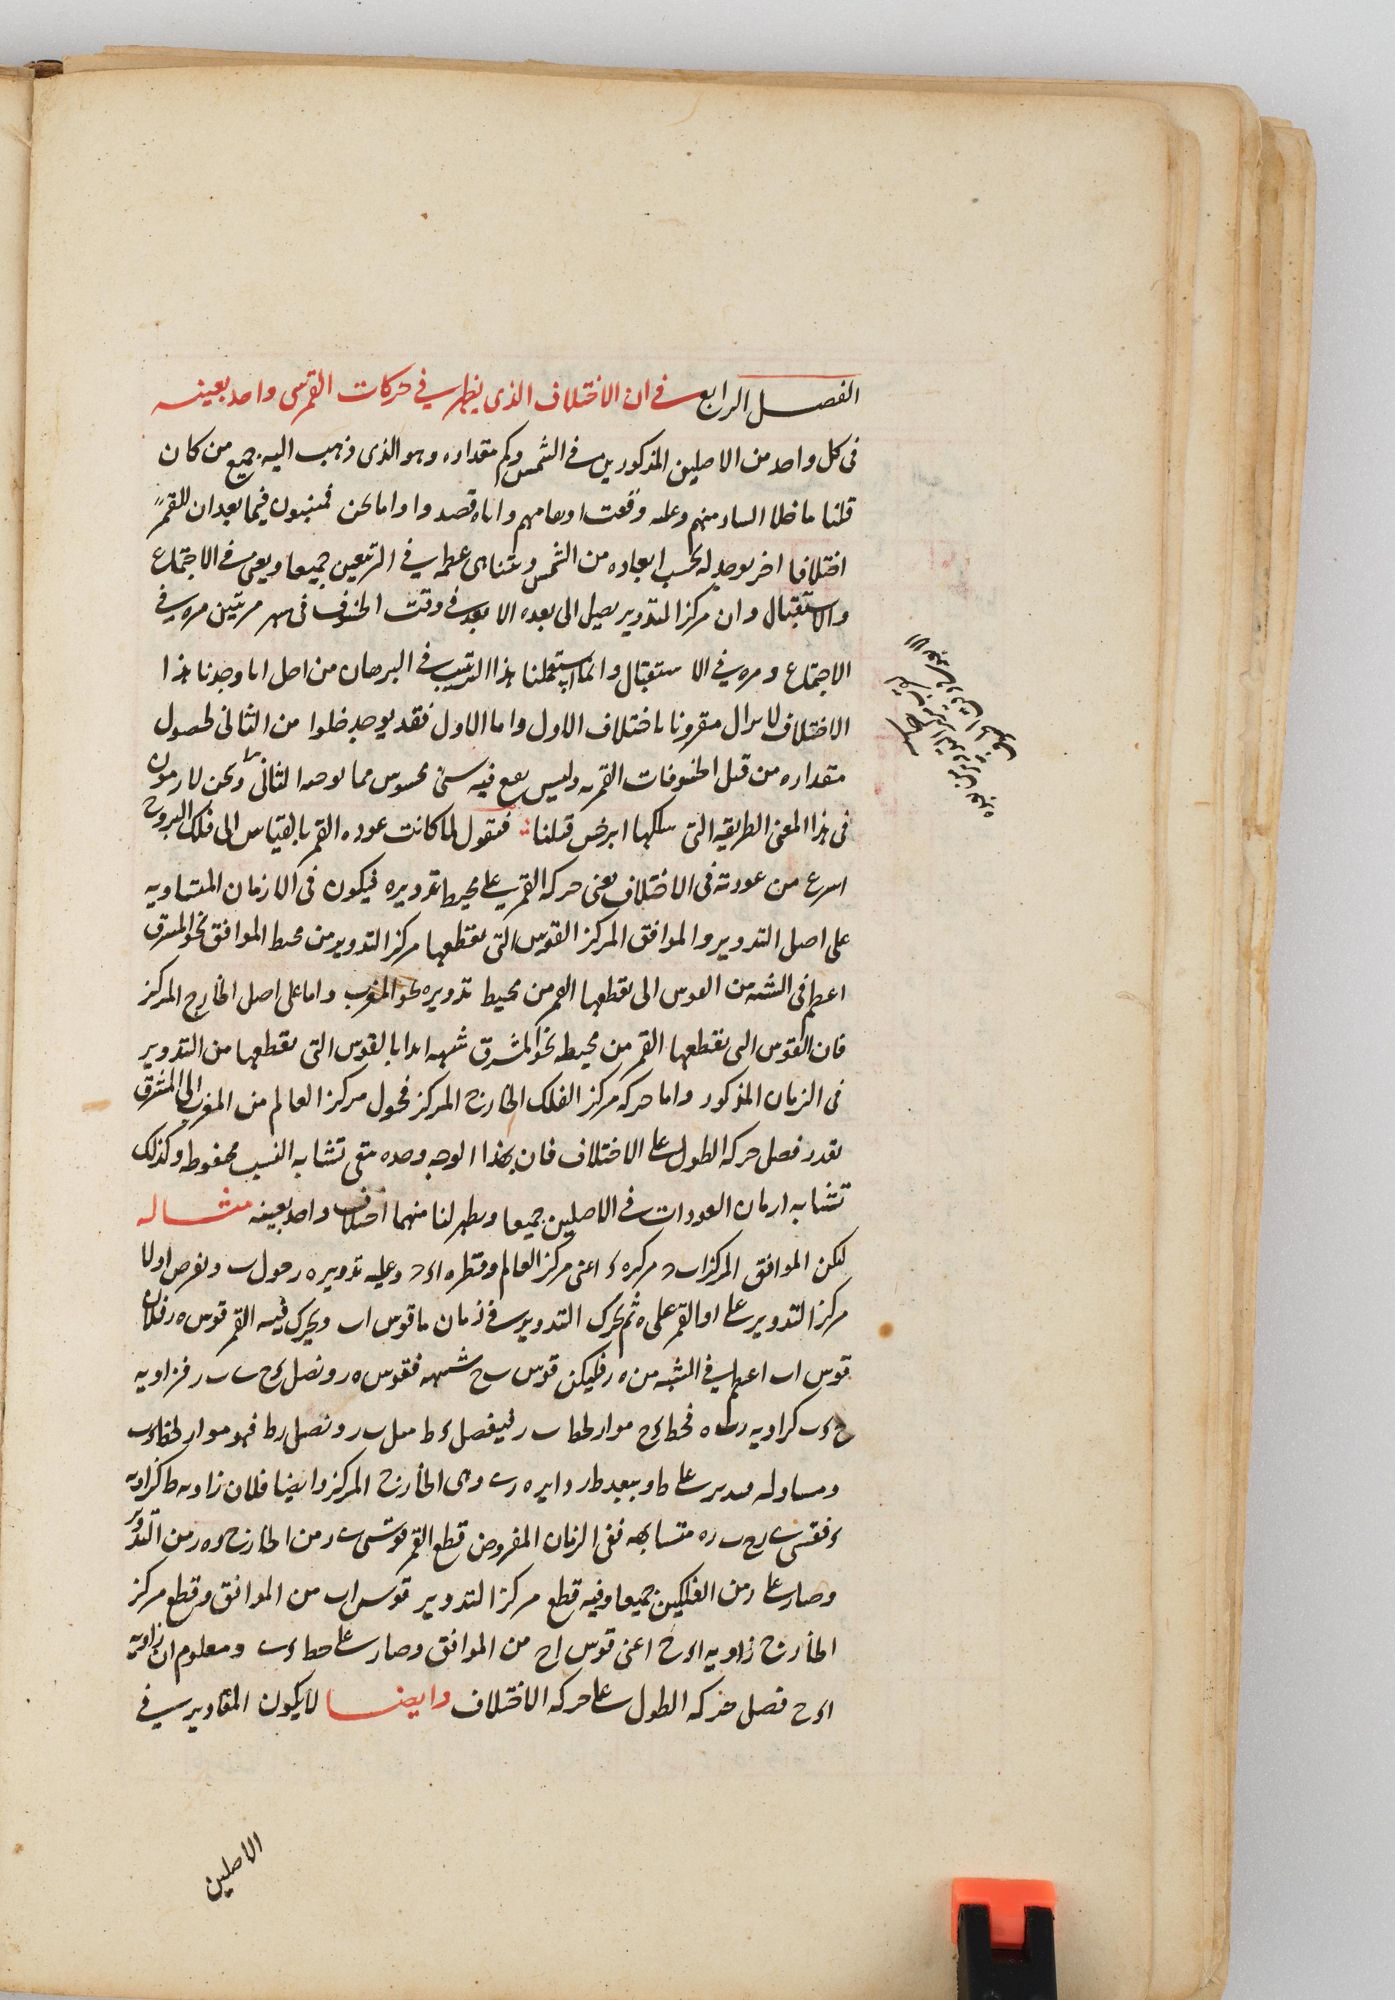 الفصل الرابع في ان الاختلاف الذي يظهر في حركات القمر شي واحد بعينه
في كل واحد من الاصلين المذكورين في الشمس وكم مقداره وهو الذي ذهب اليه جميع من كان
قلنا ما خلا منهم وعليه وقعت اوهامهم واياه قصدوا واما نحن فمنبون فيما بعد ان للقمر
اختلافا اخر يوجد له بحسب ابعاده من الشمس ويتناهى عظمه في التربيعين جميعا ويعود في الاجتماع
والاستقبال وان مركز التدوير يصل الى بعده الابعد في وقت الخسوف في شهر مرتين مرة في
الاجتماع ومره في الاستقبال وانما استعملنا هذا الترتيب في البرهان من اجل انا وجدنا هذا
الاختلاف لا يزال مقرونا باختلاف الاول واما الاول فقد يوجد خلوا من الثاني لحصول
مقداره من قبل الخسوفات القمريه وليس يقع فيه شي محسوس مما يوجبه الثاني ونحن لازمون
في هذا المعنى الطريقه التي سلكها ابرخس قبلنا فنقول لما كانت عوده القمر بالقياس الى فلك البروج
اسرع من عودته في الاختلاف يعني حركه القمر على محيط تدويره فيكون في الازمان المتساويه
على اصل التدوير والموافق المركز القوس التي يقطعها مركز التدوير من محيط الموافق نحو المشرق
اعظم في الشبه من القوس التي يقطعها القمر من محيط تدويره نحو المغرب واما على اصل الخارج المركز
فان القوس التي يقطعها القمر من محيطه نحو المشرق شبيهه ابدا بالقوس التي يقطعها من التدوير
في الزمان المذكور واما حركه مركز الفلك الخارج المركز فحول مركز العالم من المغرب الى المشرق
بقدر فصل حركه الطول على الاختلاف فان بهذا الوجه وحده متى تشابه النسب محفوظه وكذلك
تشابه ازمان العودات في الاصلين جميعا ويظهر لنا منهما اختلاف واحد بعينه مثاله
ليكن الموافق المركز اب ومركزه ء اعنى مركز العالم وقطره اءح وعليه تدويره ه ر حول ب ونفرض اولا
مركز التدوير على ا والقمر على ه ثم يحرك التدوير في زمان ما قوس اب ويحرك فيه القمر قوس ه ر فلان
قوس اب اعظم في الشبه من ه ر فليكن قوس ب ح شبيهه فقوس ه ر ونصل ء ح ء ب ب ر فزاويه
ح ء ب كزاويه ر ب ه فخط ء ح مواز لخط ب ر ليفصل ء ط مثل ب ر ونصل ر ط فهو مواز لخط ء ب
ومساو له وندير على ط وببعد ط ر دايره ر ى وهي الخارج المركز وايضا فلان زاويه ط كزاويه
ء فقسي ى ر ح ب ر ه متشابهه ففي الزمان المفروض قطع القمر قوس ى ر من الخارج و ه ر من التدوير
وصار على ر من الفلكين جميعا وفيه قطع مركز التدوير قوس اب من الموافق وقطع مركز
الخارج زاويه اء ح اعني قوس اح من الموافق وصار على خط ء ح ومعلوم ان زاويه
اء ح فصل حركه الطول على حركه الاختلاف وايضا لا يكون المقادير في
الاصلين